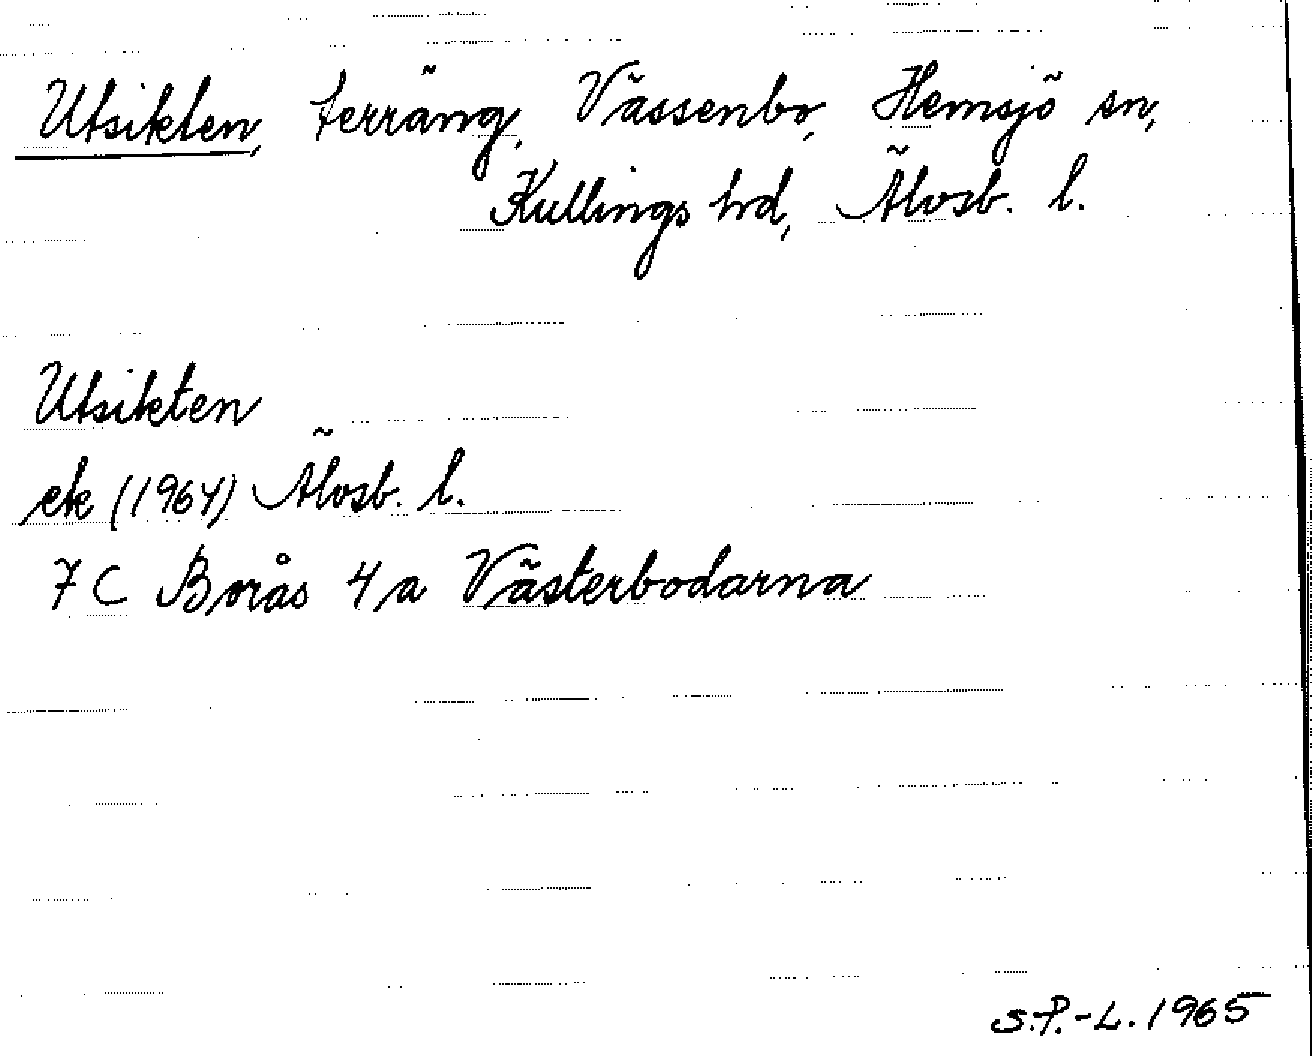 Utsikten, terräng, Vässenbo, Hemsjö sn,
Kullings hrd, Älvsb. l.
Utsikten
ek (1964) Älvsb. l.
7 C Borås 4 a Västerbodarna
S.P.-L. 1965